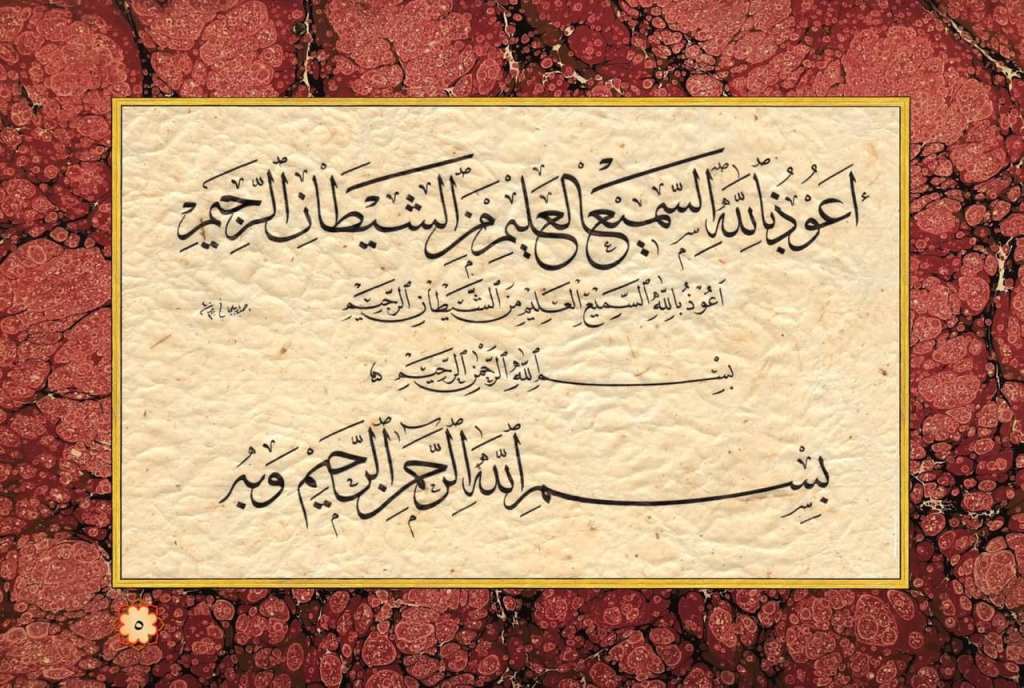 أَعُوْذُ بِاللّٰهِ السَّمِيْعِ الْعَلِيْمِ مِنَ الشَّيْطَانِ الرَّجِيْمِ
اَعُوْذُ بِاللّٰهِ السَّمِيْعِ الْعَلِيْمِ مِنَ الشَّيْطَانِ الرَّجِيْمِ
بِسْمِ اللّٰهِ الرَّحْمٰنِ الرَّحِيْمِ
بِسْمِ اللّٰهِ الرَّحْمٰنِ الرَّحِيْمِ وَبِهِ
٥